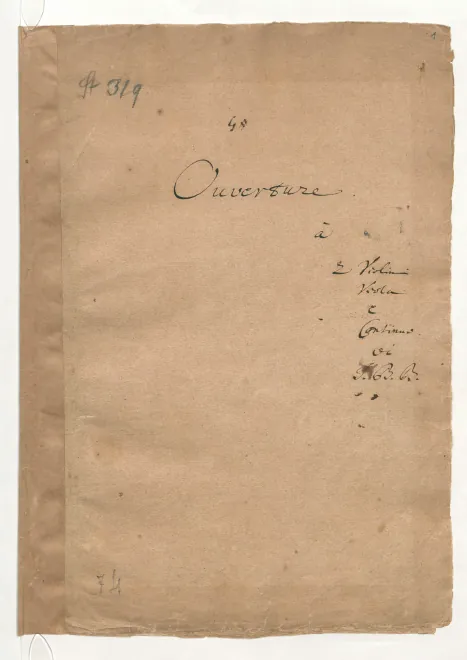 1
A 319
Ouverture.
à
2 Violini
Viola
e
Continuo.
di
J. B. B.
74